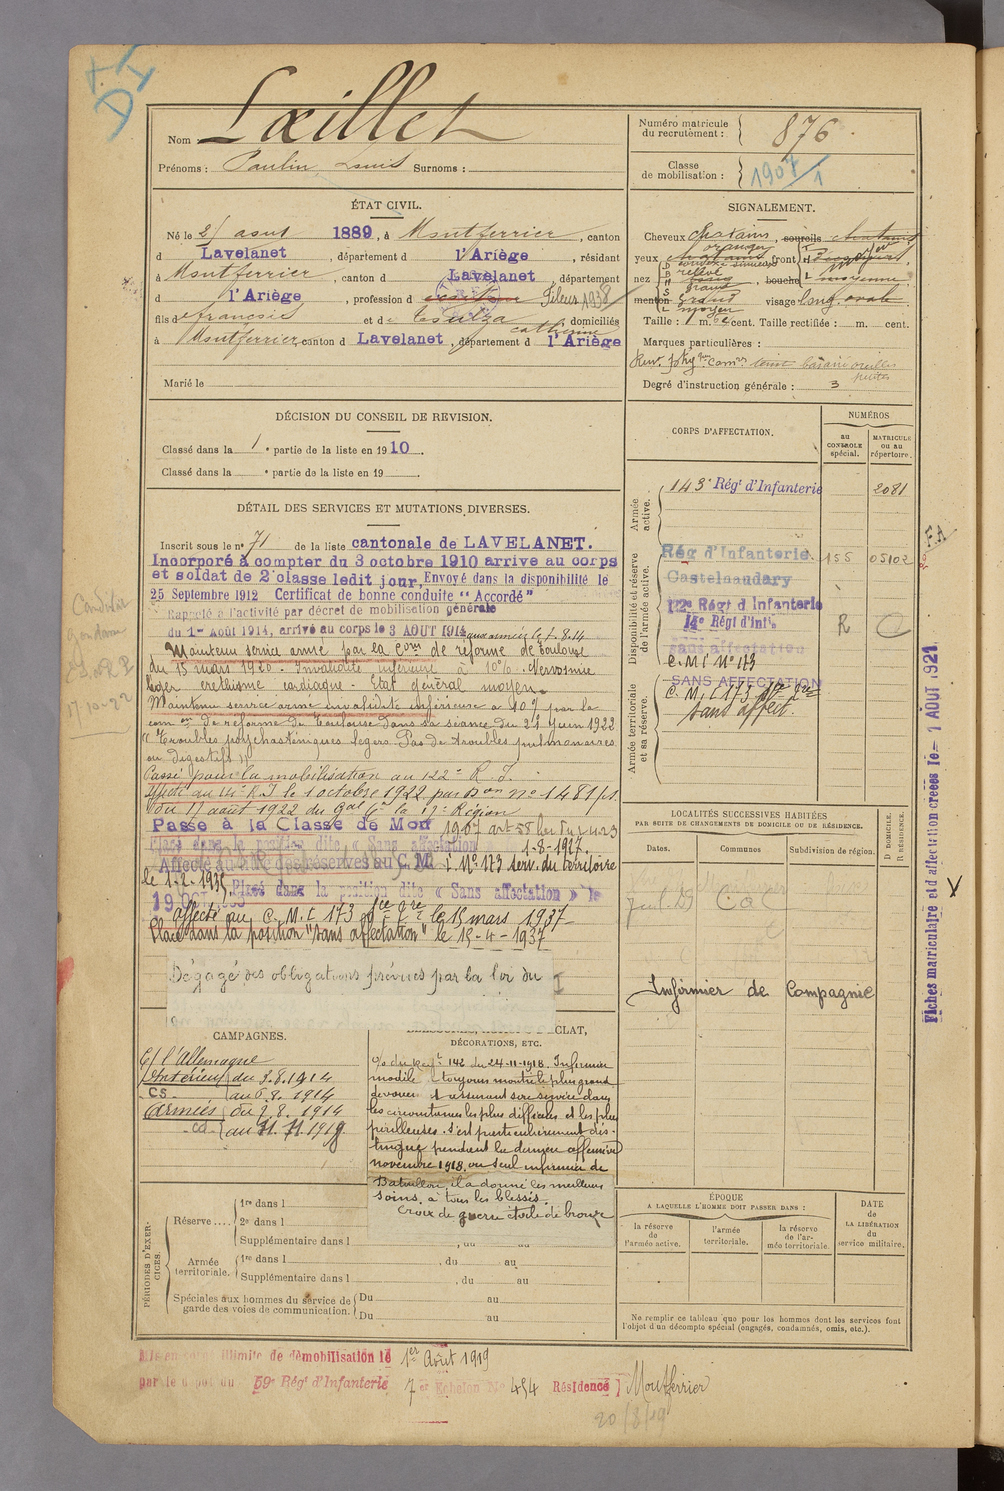 Nom Lœillet
Prénoms : Paulin Louis Surnoms :
Numéro matricule
du recrutement : 876
Classe
de mobilisation : 1907/1
ÉTAT CIVIL.
Né le août 1889, à Montferrier, canton
d Lavelanet, département d l'Ariège, résidant
à Montferrier, canton d Lavelanet département
d l'Ariège, profession d Fileur 1938
fils d françois et de domiciliés
catherine
à Montferrier, canton d Lavelanet, département d l'Ariège
Marié le
SIGNALEMENT.
Cheveux chatains sourcils chatains
yeux oranger front
nez relevé bouche moyenne
menton grand visage long ovale
moyen
Taille : 1 m. cent. Taille rectifiée : m. cent.
Marques particulières :
teint basané oreilles
petites
Degré d'instruction générale : 3
DÉCISION DU CONSEIL DE REVISION.
Classé dans la 1e partie de la liste en 1910.
Classé dans la e partie de la liste en 19
CORPS D'AFFECTATION.
NUMÉROS
au
CONTROLE
spécial.
MATRICULE
ou au
répertoire.
Armée
active.
143e Régt d'Infanterie 2081
Disponibilité et réserve
de l'armée active.
Rég d'Infanterie. 155 05102
Castelnaudary
122e Régt d'Infanterie
14e Régt d'Inf'ie R
sans affectation
C. M. I No 173
Armée territoriale
et sa réserve.
SANS AFFECTATION
C. M. I 173
sans affect.
DÉTAIL DES SERVICES ET MUTATIONS DIVERSES.
Inscrit sous le no 71 de la liste cantonale de LAVELANET.
Incorporé à compter du 3 octobre 1910 arrive au corps
et soldat de 2e classe ledit jour, Envoyé dans la disponibilité le
25 Septembre 1912 Certificat de bonne conduite "Accordé"
Rappelé à l'activité par décret de mobilisation générale
du 1er Août 1914, arrivé au corps le 3 AOUT 1914 aux armées le 7.8.14
Maintenu service armé par la Com de réforme de Toulouse
du 15 mars 1920. Invalidité inférieure à 10%. Nervosime
léger eréthisme cardiaque. Etat général moyen.
Maintenu service armé invalidité inférieure à 10% par la
com on de réforme de Toulouse dans sa séance du 21 Juin 1922
"Troubles psychasténiques légers. Pas de troubles pulmonaires
ou digestifs"
Passé pour la mobilisation au 122e R. I.
Affecté au 14e R.I le 1 octobre 1922 par on no 1481/1.
du 17 août 1922 du Gal Ct la 17e Région
Passé à la Classe de Mob 1907 art 58 loi du 1.4.23
Placé dans la position dite « Sans affectation 1-8-1927
Affecté au des réserves au C. M. I. No 173 serv. du Territoire
le 1-2-1935. Placé dans la position dite « Sans affectation » le
19 OCT
affecté au C. M. I 173 le 15 mars 1937
Placé dans la position "sans affectation" le 15-4-1937
Dégagé des obligations prévues par la loi du
LOCALITÉS SUCCESSIVES HABITÉES
PAR SUITE DE CHANGEMENTS DE DOMICILE OU DE RÉSIDENCE.
Dates. Communes Subdivision de région. D DOMICILE. R RÉSIDENCE.
Infirmier de Compagnie
CAMPAGNES.
C/ l'Allemagne
Intérieur du 3.8.1914
CS au 6.8.1914
Armées du 7.8.1914
CD au 11.11.1919
DÉCORATIONS, ETC.
142 du 24-11-1918. Infirmier
modèle toujours montré le plus grand
dévouement assurant son service dans
les circonstances les plus difficiles et les plus
périlleuses. s'est particulièrement dis-
tingué pendant la dernière offensive
novembre 1918, ou seul infirmier de
Bataillon, il a donné les meilleurs
soins, à tous les blessés.
Croix de guerre étoile de bronze
PÉRIODES D'EXER-
CICES.
Réserve
1re dans l
2e dans l
Supplémentaire dans l , du au
Armée
territoriale.
1re dans l , du au
Supplémentaire dans l , du au
Spéciales aux hommes du service de
garde des voies de communication.
Du au
Du au
ÉPOQUE
A LAQUELLE L'HOMME DOIT PASSER DANS :
la réserve
de
l'armée active.
l'armée
territoriale.
la réserve
de l'ar-
mée territoriale.
DATE
de
LA LIBÉRATION
du
service militaire.
Ne remplir ce tableau que pour les hommes dont les services font
l'objet d'un décompte spécial (engagés, condamnés, omis, etc.).
Mis en congé illimité de démobilisation le 1er Août 1919
par le dépôt du 59e Régt d'Infanterie 7e Echelon No 454 Résidence Montferrier
20/8/19
F.A
Fiches matriculaire et d'affectation créées le 1 AOUT 1921
17-10-22